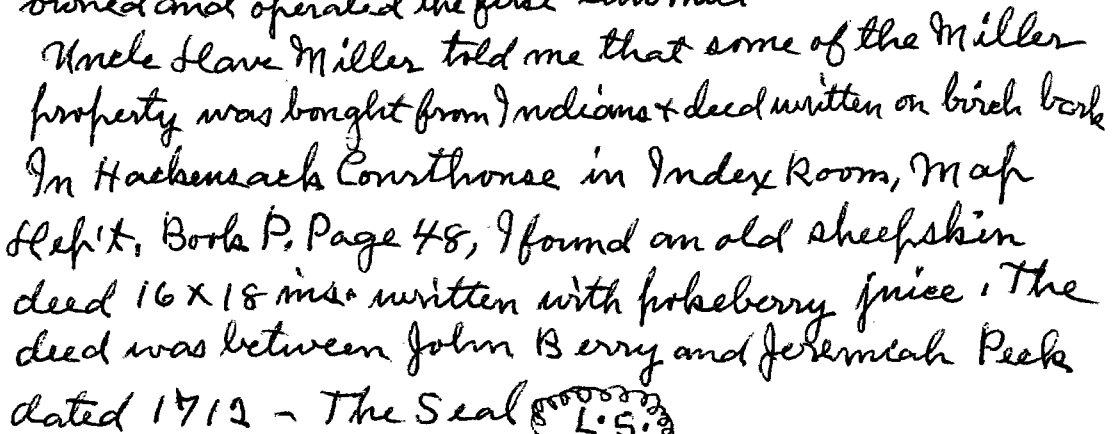 owned and operated the first
Uncle Dave Miller told me that some of the Miller
property was bought from Indians + deed written on birch bark
In Hackensack Courthouse in Index Room, Map
Dep't, Book P. Page 48, I found an old sheepskin
deed 16 x 18 ins. written with pokeberry juice. The
deed was between John Berry and Jeremiah Peek
dated 1712 - The Seal L.S.